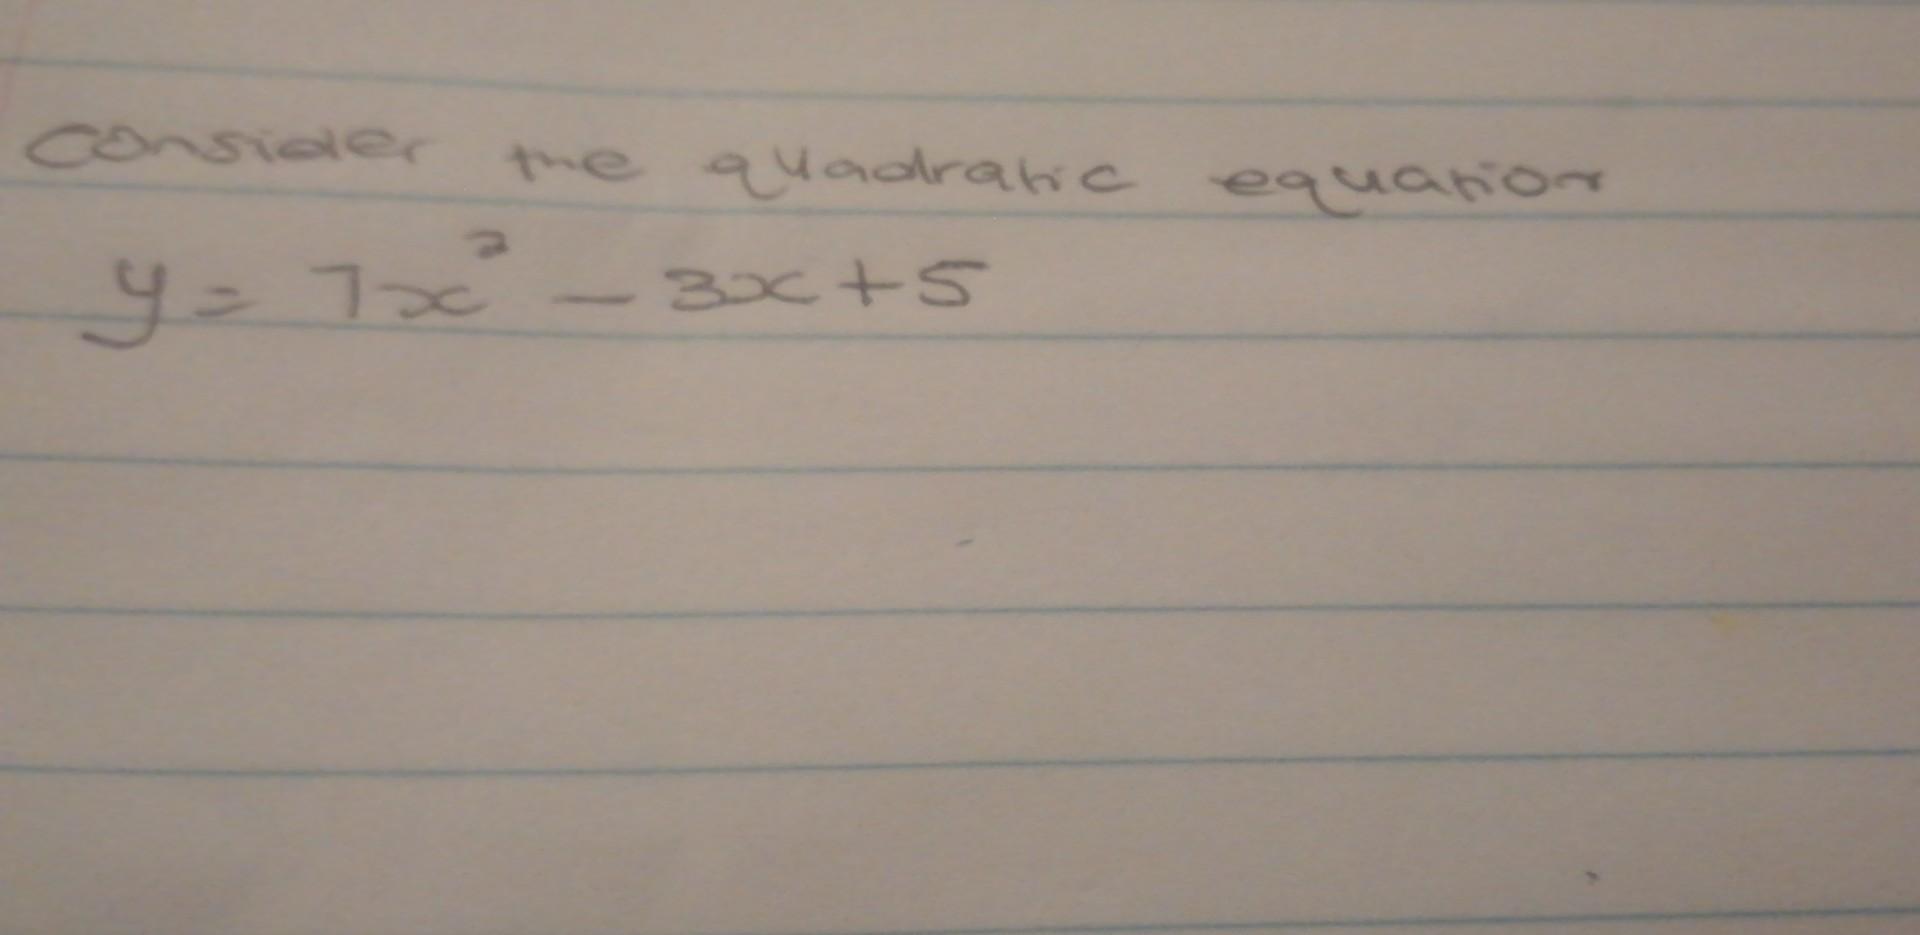 Consider the quadratic equation
y = 7x² - 3x + 5